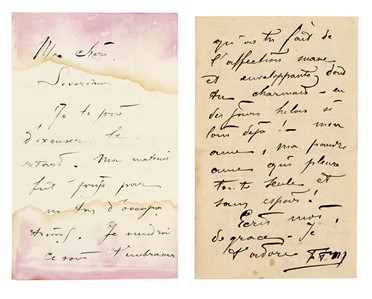 Mon cher
Severine
Je te prie
d'excuser le
retard. Ma matinée
fut prise par
un tas d'occupa
tions. Je voudrais
ce soir t'embrasser
qu'as tu fait de
l'affection suave
et enveloppante dont
tu charmais
des jours hélas si
loin déjà! - mon
ame, ma pauvre
ame qui pleure
toute seule et
sans espoir!
Ecris moi,
de grace. Je
t'adore